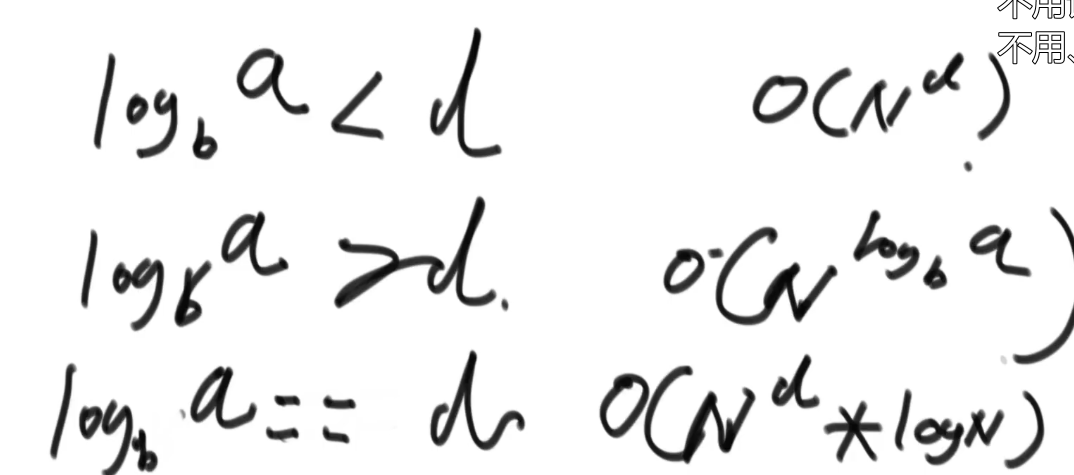 不用
不用、
log_b a < d O(N^d)
log_b a > d. O(N^{log_b a})
log_b a == d O(N^d * logN)